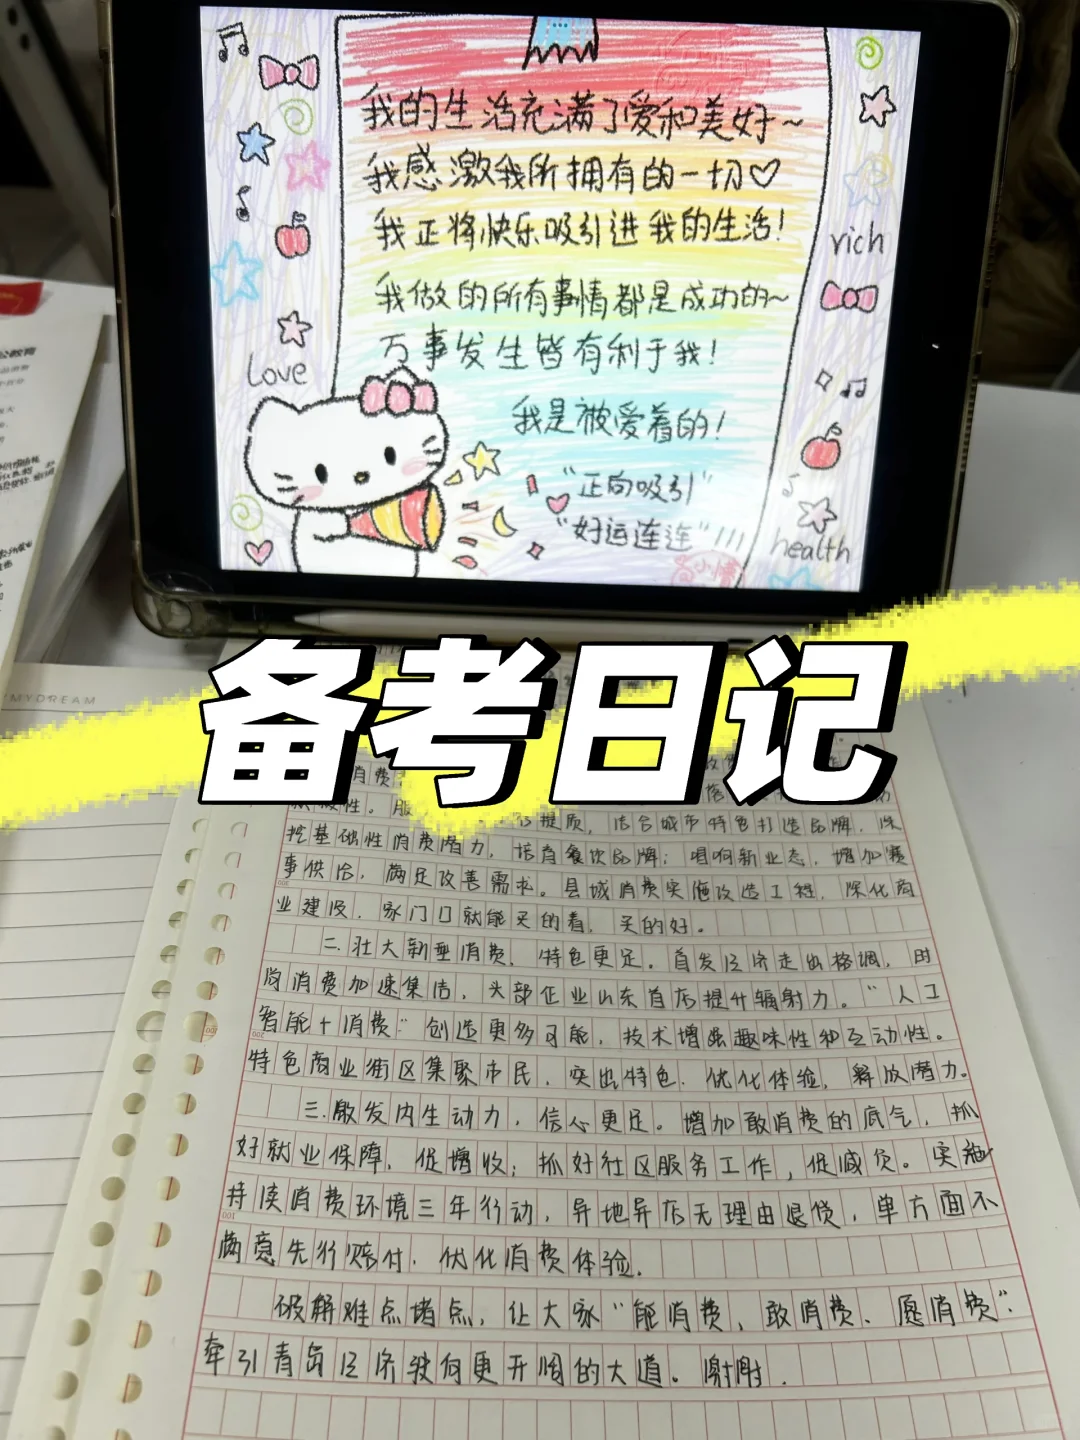 我的生活充满了爱和美好~
我感激我所拥有的一切♡
我正将快乐吸引进我的生活！
rich
我做的所有事情都是成功的~
万事发生皆有利于我！
Love
我是被爱着的！
"正向吸引"
"好运连连"!!!
health
MYDREAM
备考日记
消费
提质，结合城市特色打造品牌，深
挖基础性消费潜力，培育餐饮品牌；唱响新业态，增加赛
事供给，满足改善需求。县域消费实施改造工程，深化商
业建设，家门口就能买的着，买的好。
二.壮大新型消费，特色更足。首发经济走出格调，时
尚消费加速集结，头部企业山东首店提升辐射力。"人工
智能+消费"创造更多可能，技术增强趣味性和互动性。
特色商业街区集聚市民，突出特色，优化体验，释放潜力。
三.激发内生动力，信心更足。增加敢消费的底气，抓
好就业保障，促增收；抓好社区服务工作，促减负。实施
持续消费环境三年行动，异地异店无理由退货，单方面不
满意先行赔付，优化消费体验.
破解难点堵点，让大家"能消费、敢消费、愿消费"，
牵引青岛经济驶向更开阔的大道。谢谢.